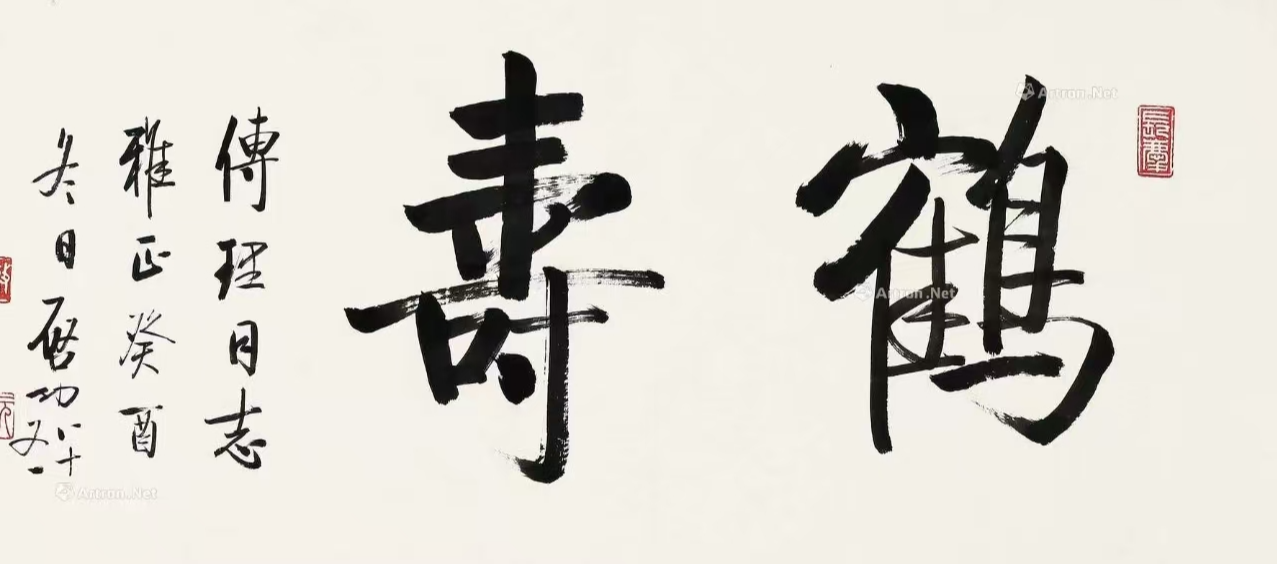 鶴壽
傳理同志
雅正癸酉
冬日启功八十又一
Artron.Net
Artron.Net
Artron.Net